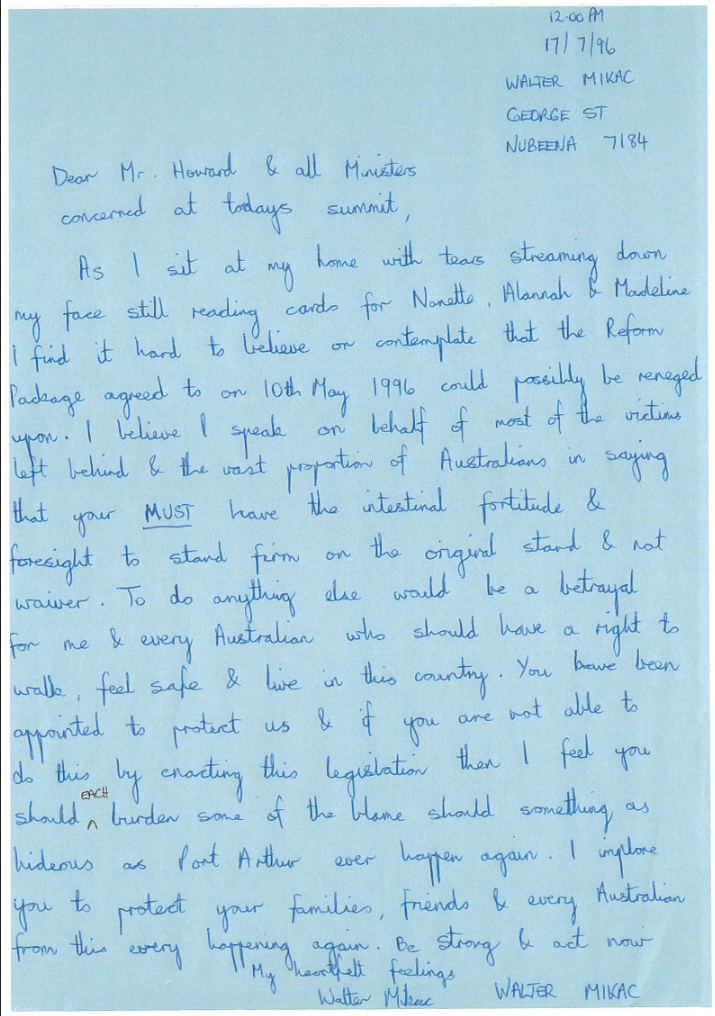 12.00 AM
17/7/96
WALTER MIKAC
GEORGE ST
NUBEENA 7184
Dear Mr. Howard & all Ministers
concerned at todays summit,
As I sit at my home with tears streaming down
my face still reading cards for Nanette, Alannah & Madeline
I find it hard to believe or contemplate that the Reform
Package agreed to on 10th May 1996 could possibly be reneged
upon. I believe I speak on behalf of most of the victims
left behind & the vast proportion of Australians in saying
that your MUST have the intestinal fortitude &
foresight to stand firm on the original stand & not
waiver. To do anything else would be a betrayal
for me & every Australian who should have a right to
walk, feel safe & live in this country. You have been
appointed to protect us & if you are not able to
do this by enacting this legislation then I feel you
should EACH burden some of the blame should something as
hideous as Port Arthur ever happen again. I implore
you to protect your families, friends & every Australian
from this every happening again. Be strong & act now
My heartfelt feelings
Walter Mikac WALTER MIKAC